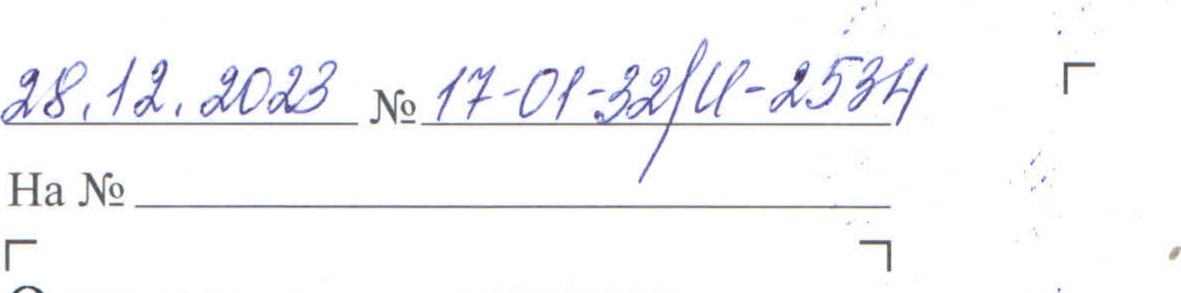 28.12.2023 № 17-01-32/И-2534
На №